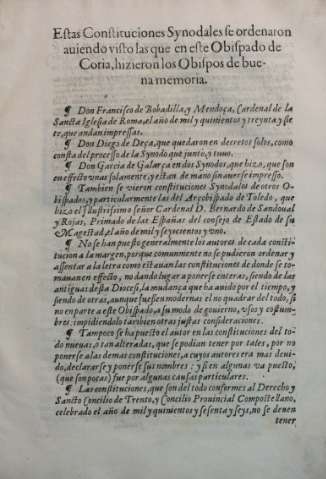 Estas Constituciones Synodales se ordenaron
auiendo visto las que en este Obispado de
Coria, hizieron los Obispos de bue-
na memoria.
¶ Don Francisco de Bobadilla, y Mendoça, Cardenal de la
Sancta Iglesia de Roma, el año de mil y quinientos y treynta y sie
te, que andan impressas.
¶ Don Diego de Deça, que quedaron en decretos solos, como
consta del processo de la Synodo que juntò, y tuuo.
¶ Don Garcia de Galarça en dos Synodos, que hizo, que son
en effecto vnas solamente, y estan de mano sin auerse impresso.
¶ Tambien se vieron constituciones Synodales de otros O-
bispados, y particularmente las del Arçobispado de Toledo, que
hizo el Illustrissimo señor Cardenal D. Bernardo de Sandoual
y Rojas, Primado de las Españas del consejo de Estado de su
Magestad, el año de mil y seyscientos y vno.
¶ No se han puesto generalmente los autores de cada consti-
tucion a la margen, porque comunmente no se pudieron ordenar y
assentar a la letra como estauan las constituciones de donde se to-
maron en efecto, no dando lugar a ponerse enteras, siendo de las
antiguas desta Diocesi, la mudança que ha auido por el tiempo, y
siendo de otras, aunque fuessen modernas el no quadrar del todo, si
no en parte a este Obispado, a su modo de gouierno, vsos y costum-
bres, impidiendolo tambien otras justas consideraciones.
¶ Tampoco se ha puesto el autor en las constituciones del to-
do nueuas, o tan alteradas, que se podian tener por tales, por no
ponerse a las demas constituciones, a cuyos autores era mas deui-
do, declararse y ponerse sus nombres: y si en algunas va puesto,
(que son pocas) fue por algunas causas particulares.
¶ Las constituciones, que son del todo conformes al Derecho y
Sancto Concilio de Trento, y Concilio Prouincial Compostellano,
celebrado el año de mil y quinientos y sesenta y seys, no se deuen
tener